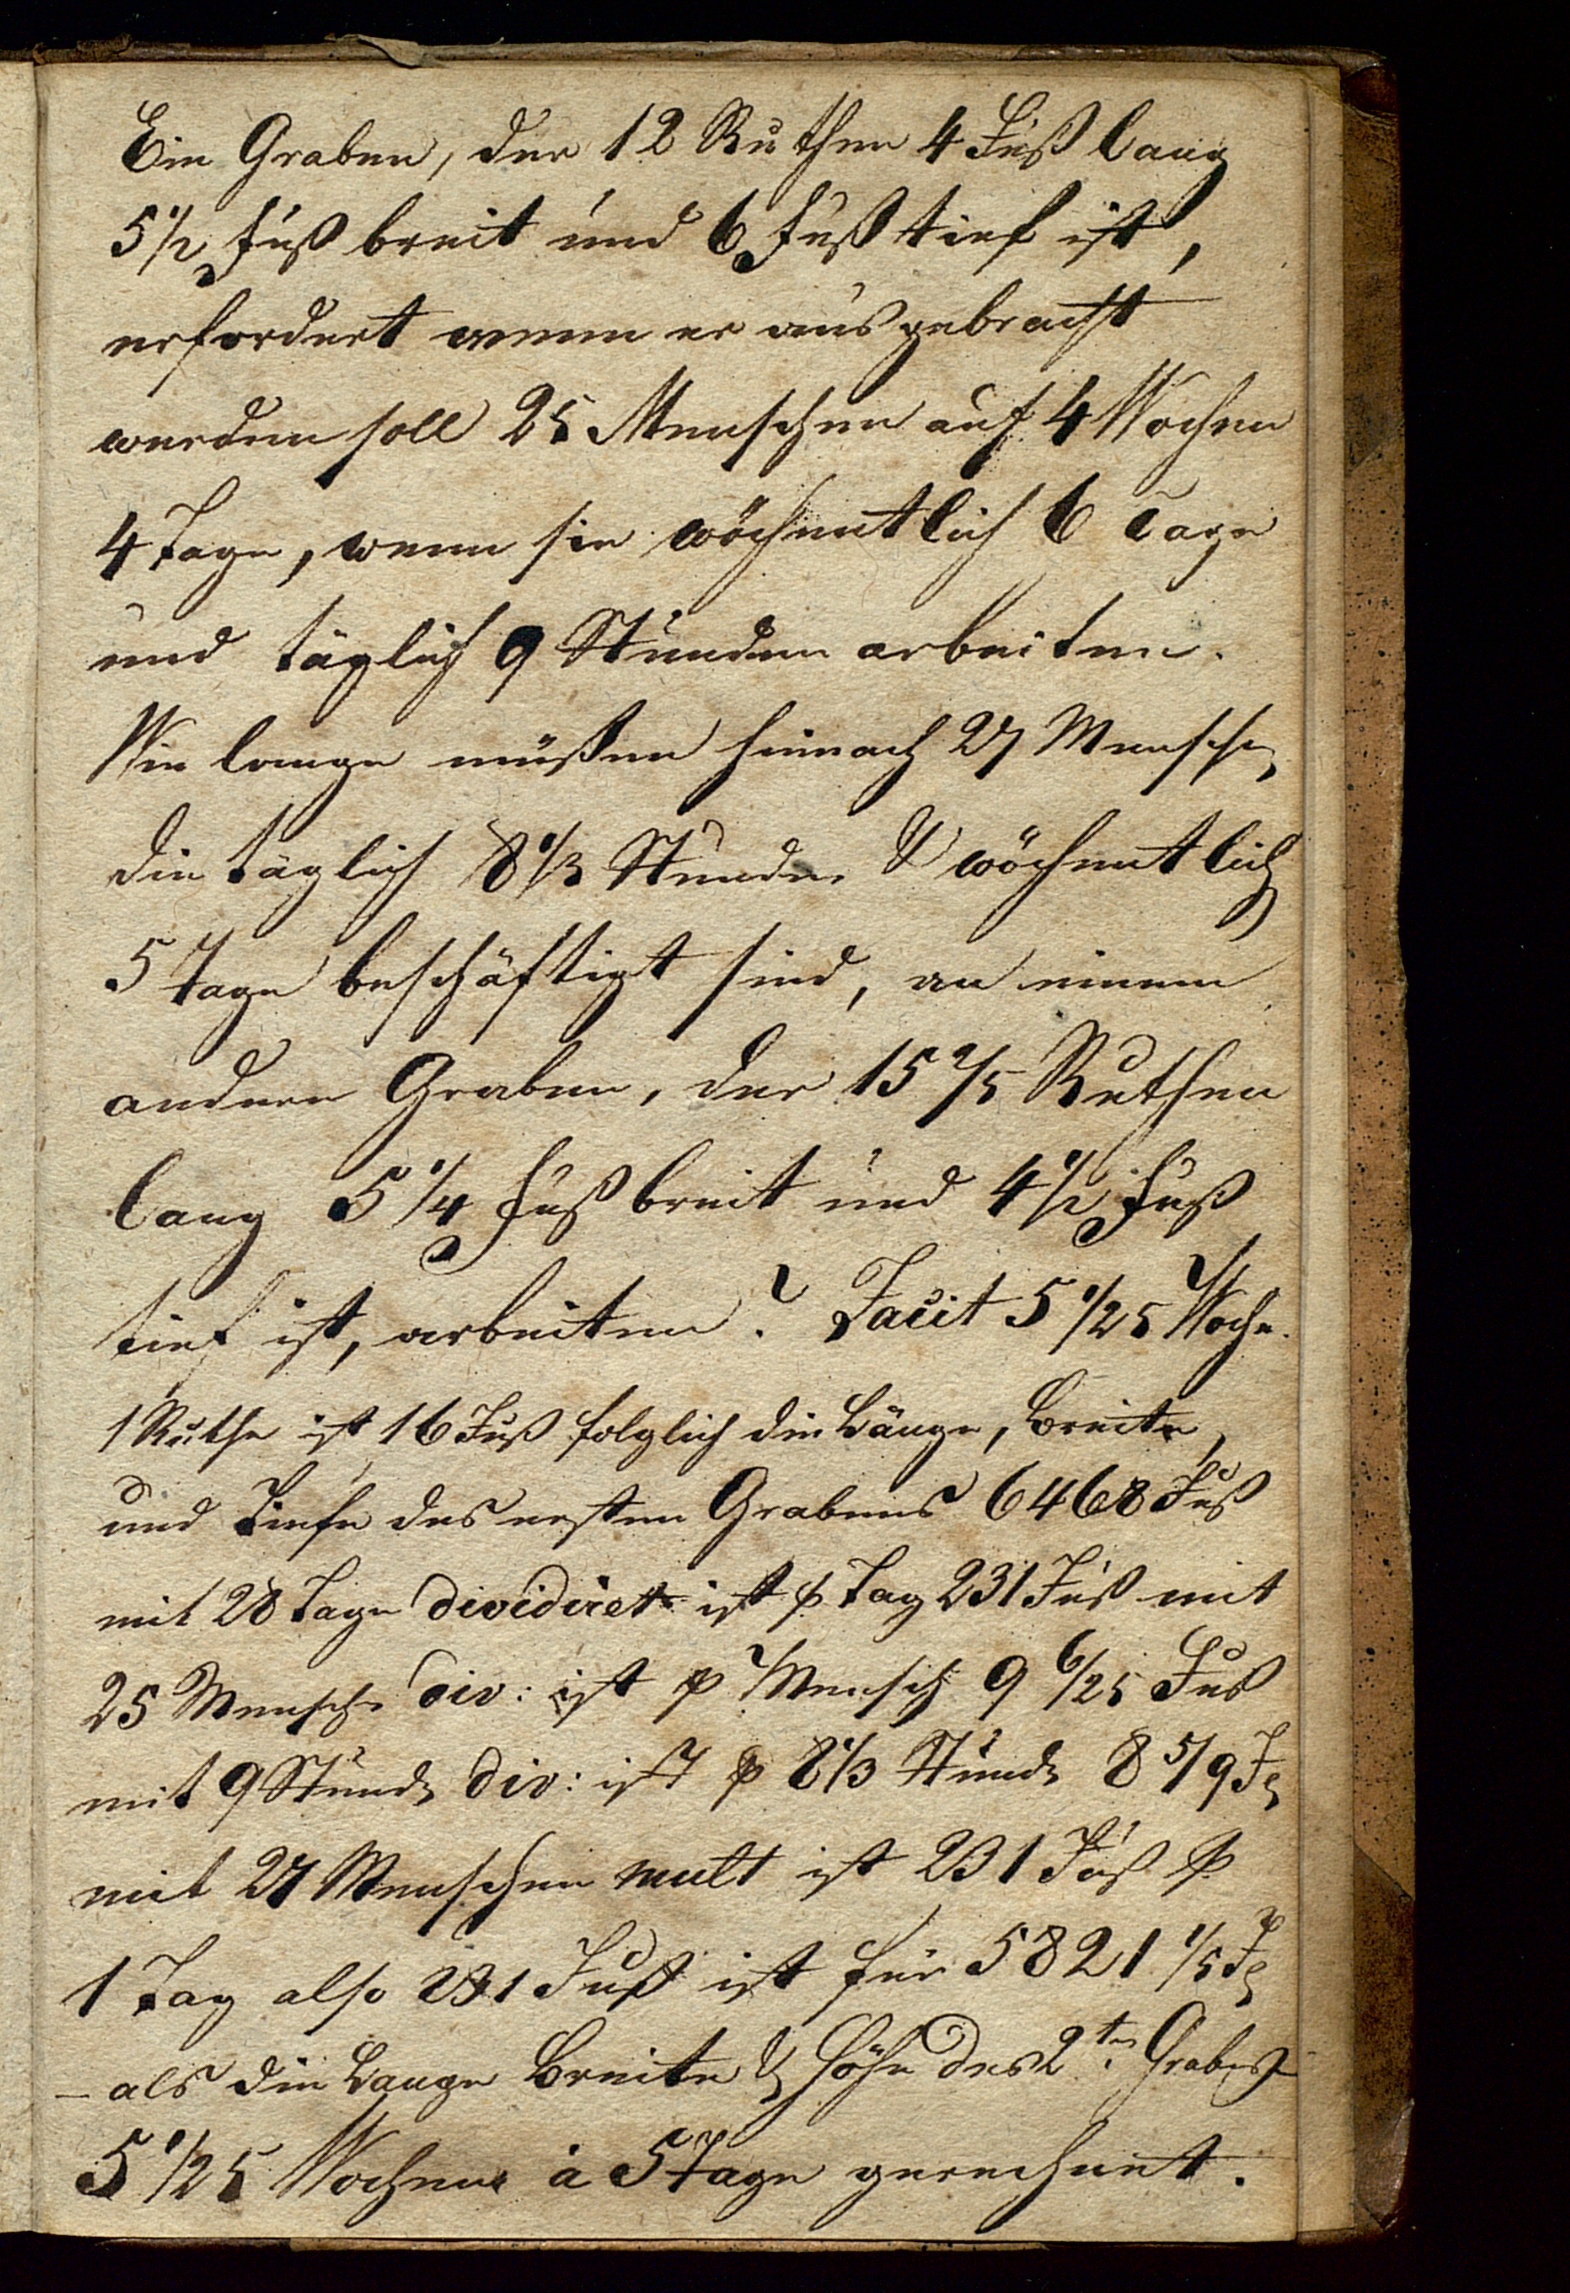 Ein Graben, der 12 Ruthen 4 Fuß lang
5 1/2 Fuß breit und 6 Fuß tief ist,
erfordert wenn er ausgebracht
werden soll 25 Menschen auf 4 Wochen
4 Tage, wenn sie wöchentlich 6 Tage
und täglich 9 Stunden arbeiten.
Wie lange müßen hienach 27 Menschen
die täglich 8 1/3 Stunden & wöchentlich
5 Tage beschäftigt sind, an einem
andern Graben, der 15 2/5 Ruthen
lang 5 1/4 Fuß breit und 4 1/2 Fuß
tief ist, arbeiten? Facit 5 1/25 Woche.
1 Ruthe ist 16 Fuß folglich die Länge, Breite,
und Tiefe des ersten Grabens 6468 Fuß
mit 28 Tage dividiret ist p Tag 231 Fuß mit
25 Mensche div: ist p Mensch 9 6/25 Fus
mit 9 Stunden div: ist p 8 1/3 Stunden 8 5/9 Fß
mit 27 Menschen mult ist 231 Fuß p
1 Tag also 231 Fuß ist für 5821 1/5 Fß
– als die Länge Breite & Höhe des 2ten Grabens –
5 1/25 Wochen à 5 Tage gerechnet.